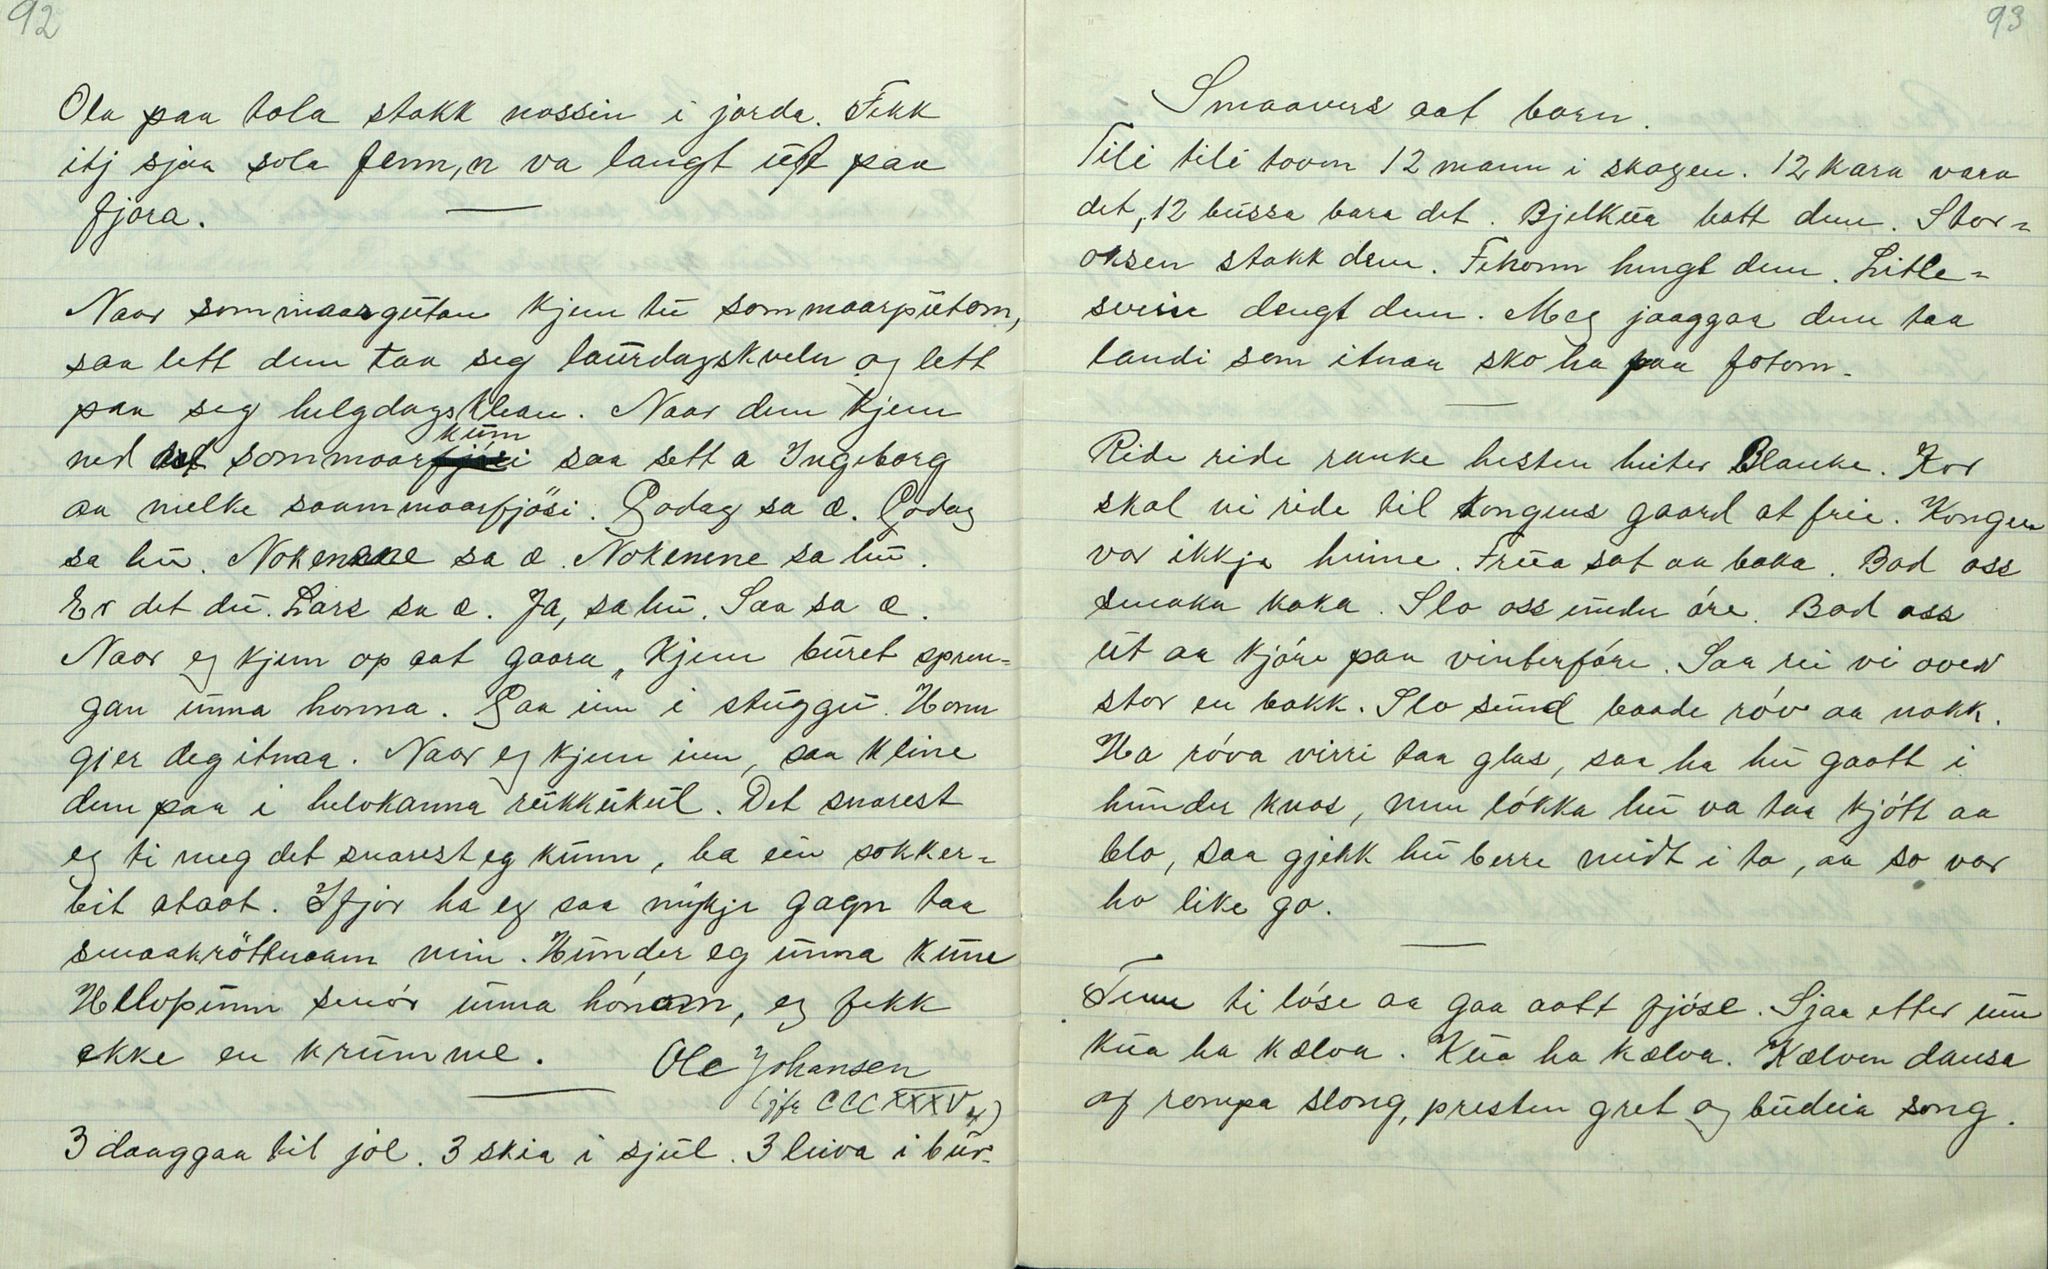 92
Ola paa tola stakk nossin i jorda. Fekk
itj sjaa sola fenn, n va langt ut paa
fjora.
Naar sommaargutan kjem tu sommaarputom,
saa lett dem taa seg laurdagskveln og lett
paa seg helgdagsklean. Naar dem kjem
ned sommaarkum saa sett a Ingeborg
aa melke saammaarfjösi. Godag sa æ. Godag
sa hu. Nokenene sa æ. Nokenene sa hu.
Er det du Lars sa æ. Ja, sa hu. Saa sa æ.
Naar eg kjem op aat gaara, kjem buret spren-
gan unna honna. Gaa inn i stuggu. Honn
gjer deg itnaa. Naar eg kjem inn, saa kline
dem paa i helokanna rukkukul. Det snarest
eg ti meg det snarest eg kunn, ba ein sokker-
bit ataat. Ifjor ha eg saa mykje gagn taa
smaakröttnaam min. Hunder eg unna kune
Hellopunn smór unna hónom, eg fekk
ekke en krumme.
Ole Johansen
(jfr CCCXXXV 4)
3 daaggaa til jol. 3 skia i sjul. 3 leiva i bur.
93
Smaavers aat barn.
Tili tili tovm 12 mann i skogen. 12 kara vara
det, 12 bussa bara det. Bjelkua batt dem. Stor-
oksen stakk dem. Fekonn hengt dem. Litle-
svein dengt dem. Meg jaaggaa dem taa
landi som itnaa sko ha paa fotom.
Ride ride ranke hesten heiter Blanke. Kor
skal vi ride til kongens gaard at frie. Kongen
var ikkje heime. Frua sat aa baka. Bad oss
smaka kaka. Slo oss under óre. Bad oss
ut aa kjóre paa vinterfóre. Saa rei vi over
stor en bakk. Slo sund baade róv aa nakk.
Ha róva virri taa glas, saa ha hu gaatt i
hunder knas, men lókka hu va taa kjótt aa
blo, saa gjekk hu berre midt i to, aa so var
ho like go.
Tenn ti lóse aa gaa aatt fjóse. Sjaa etter um
kua ha kælva. Kua ha kælva. Kælven dansa
og rompa slong, presten gret og budeia song.